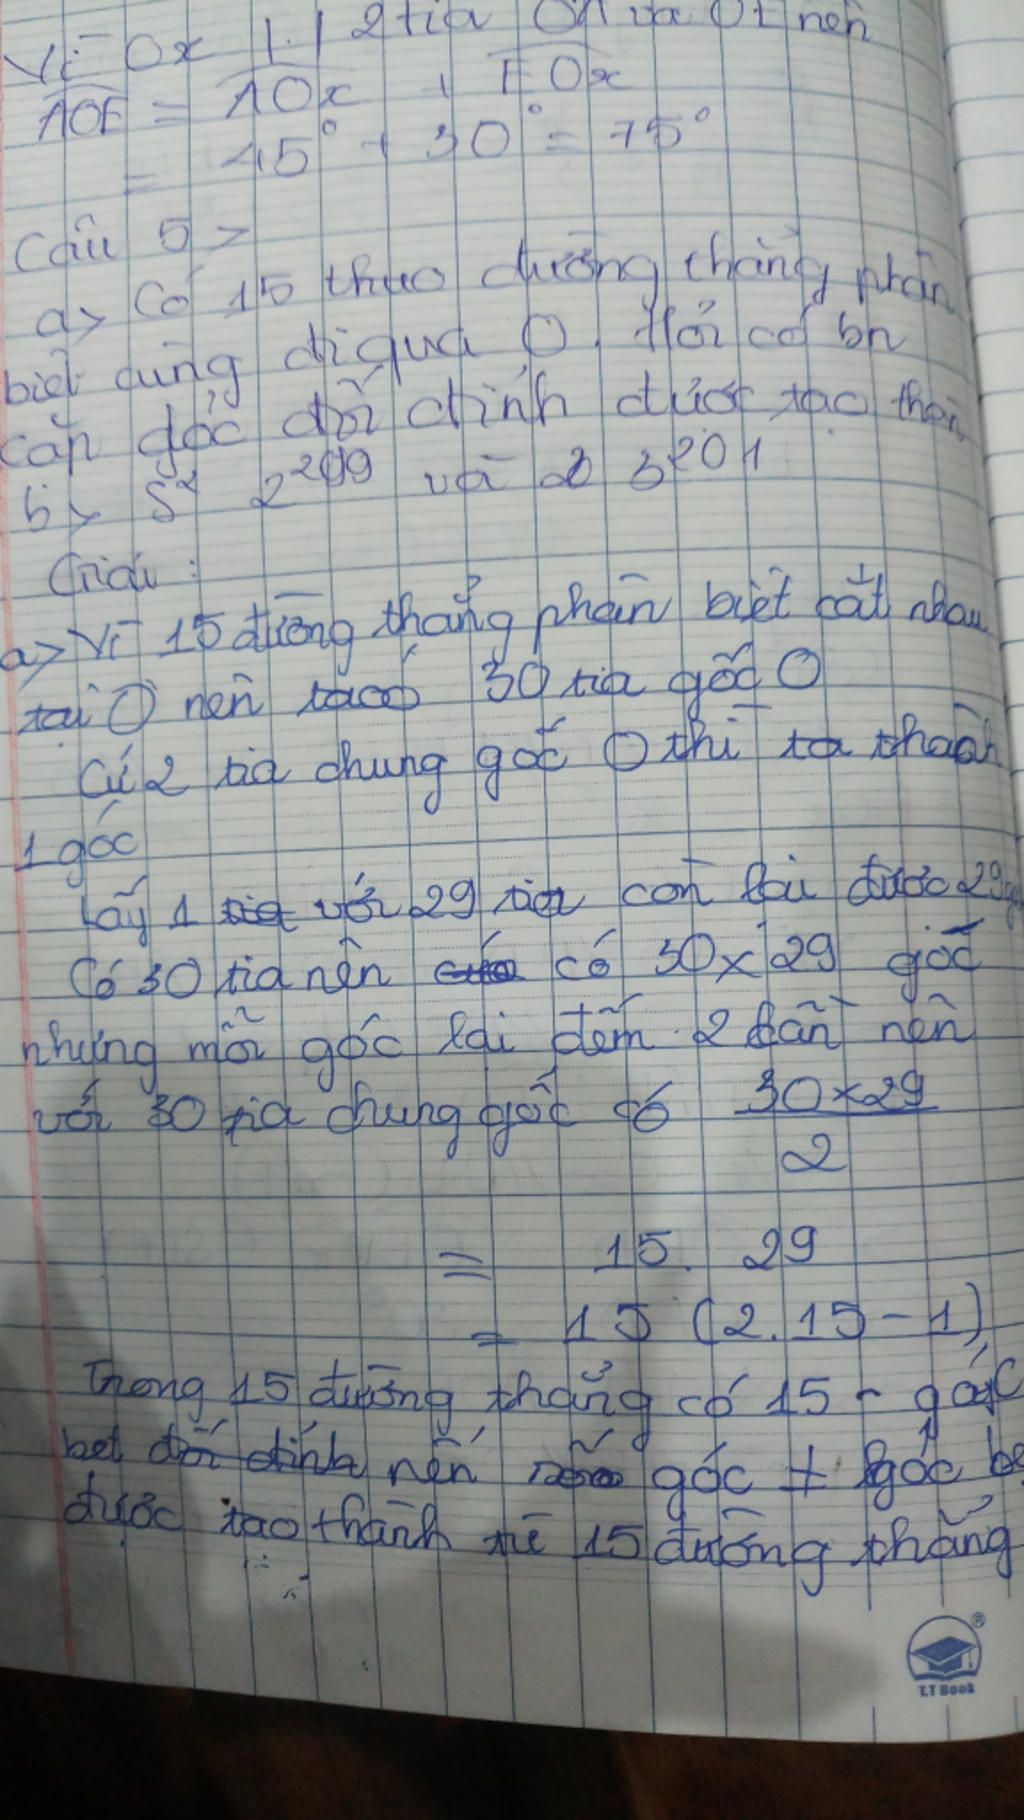 Vì Ox 2 tia OA và OE nên
AOE = AOx + EOx
= 45° + 30° = 75°
Câu 5>
a> Có 15 đường thẳng phân
biệt cùng đi qua O. Hỏi có bn
cặp góc đối đỉnh được tạo thàn
b> S² 2²⁹⁹ và 3²⁰¹
Giải:
a> Vì 15 đường thẳng phân biệt cắt nhau
tại O nên ta có 30 tia gốc O
Cứ 2 tia chung gốc O thì ta thành
1 góc
Lấy 1 tia với 29 tia còn lại được 29
Có 30 tia nên có 30x29 góc
nhưng mỗi góc lại đếm 2 lần nên
với 30 tia chung gốc có 30x29
2
= 15. 29
= 15 (2.15-1)
Trong 15 đường thẳng có 15 góc
bẹt nên góc ≠ góc bẹ
được tạo thành từ 15 đường thẳng
T.T Book